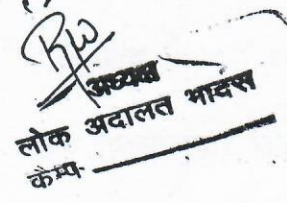 अध्यक्ष
लोक अदालत भादरा
कैम्प-